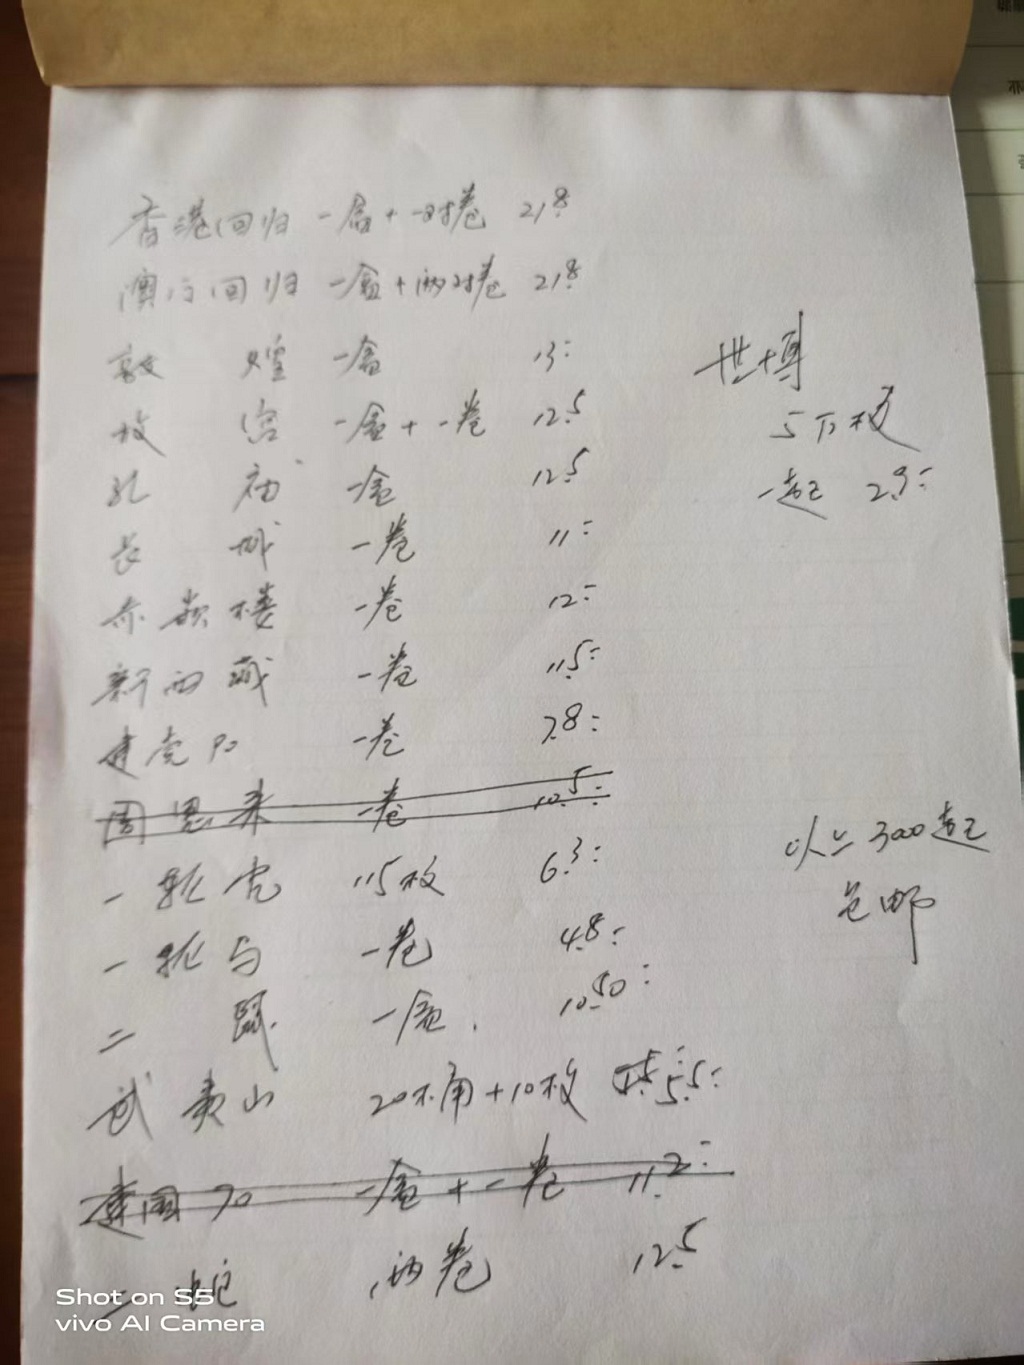 香港回归 一盒+一对卷 21.8
澳门回归 一盒+两对卷 21.8
敦煌 一盒 13:
故宫 一盒+一卷 12.5
孔庙 一盒 12.5
长城 一卷 11:
赤嵌楼 一卷 12:
新西藏 一卷 11.5:
建党90 一卷 7.8:
周恩来 一卷 10.5:
一轮虎 115枚 6.3:
一轮马 一卷 4.8:
二鼠 一盒. 10.50:
武夷山 20不角+10枚 5.5:
建国70 一盒+一卷 11.2:
二蛇 两卷 12.5
世博
5百枚
一起 2.9:
以上300起
包邮
Shot on S5
vivo AI Camera